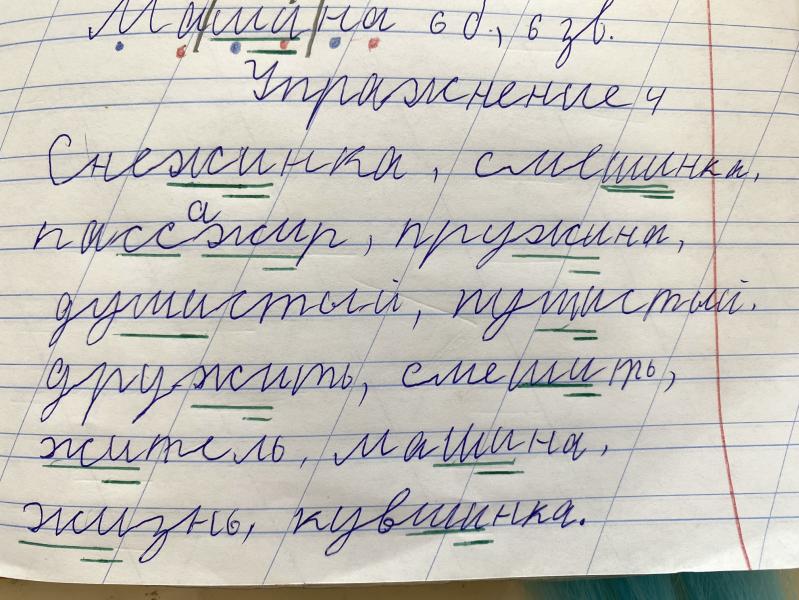 Машина 6 б., 6 зв.
Упражнение 4
Снежинка, смешинка,
пассажир, пружина,
душистый, пушистый.
дружить, смешить,
житель, машина,
жизнь, кувшинка.